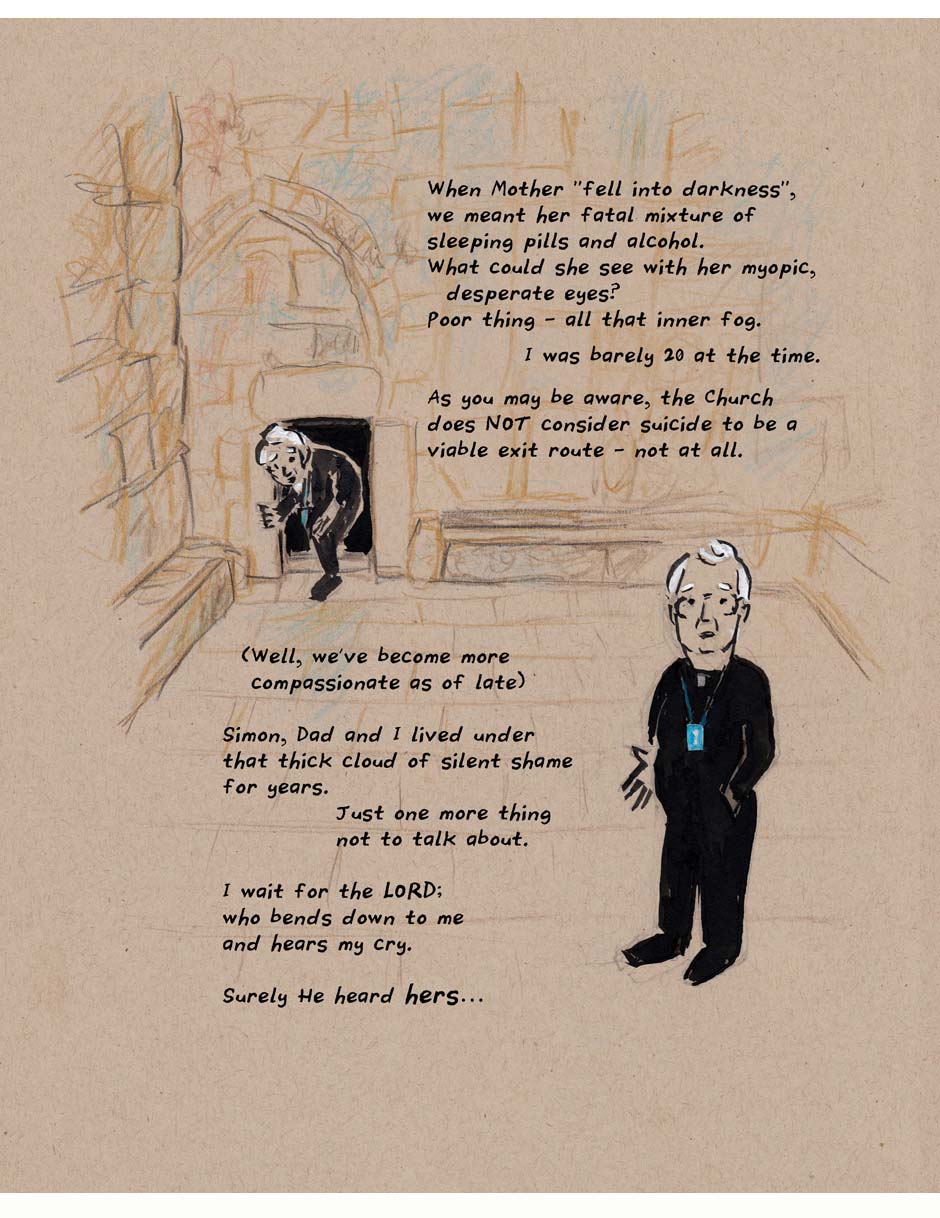 When Mother "fell into darkness",
we meant her fatal mixture of
sleeping pills and alcohol.
What could she see with her myopic,
desperate eyes?
Poor thing - all that inner fog.
I was barely 20 at the time.
As you may be aware, the Church
does NOT consider suicide to be a
viable exit route - not at all.
(Well, we've become more
compassionate as of late)
Simon, Dad and I lived under
that thick cloud of silent shame
for years.
Just one more thing
not to talk about.
I wait for the LORD;
who bends down to me
and hears my cry.
Surely He heard hers...